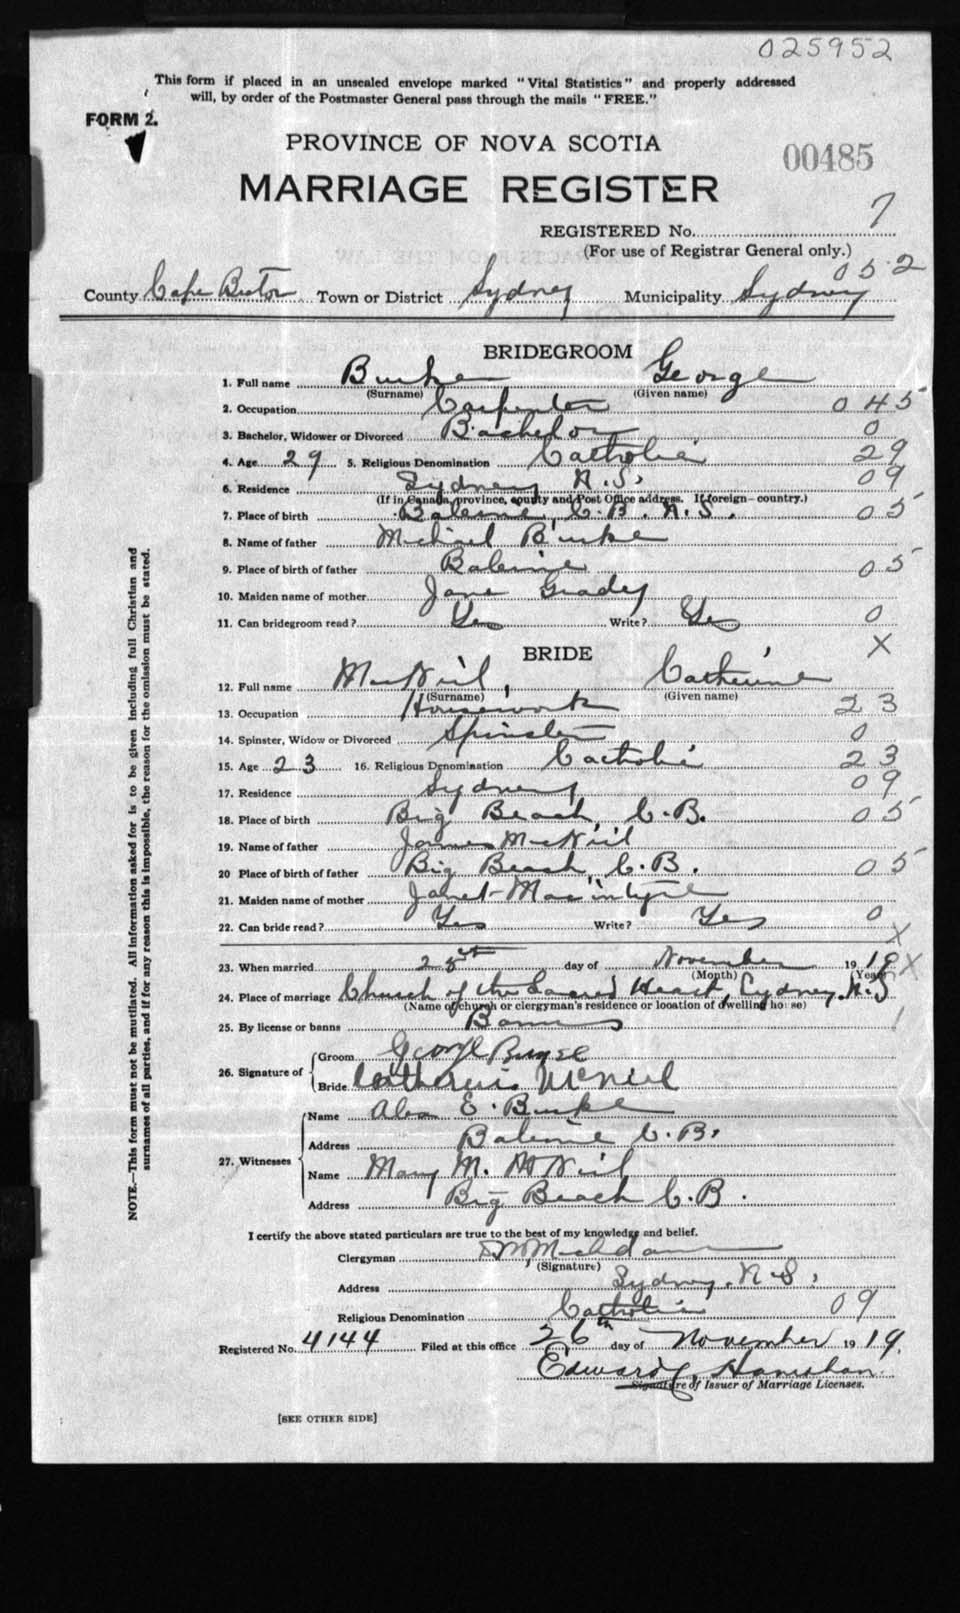 025952
This form if placed in an unsealed envelope marked "Vital Statistics" and properly addressed
will, by order of the Postmaster General pass through the mails "FREE."
FORM 2.
PROVINCE OF NOVA SCOTIA
00485
MARRIAGE REGISTER
REGISTERED No. 7
(For use of Registrar General only.)
052
County Cape Breton Town or District Sydney Municipality Sydney
BRIDEGROOM
1. Full name Burke George
(Surname) (Given name)
2. Occupation Carpenter 045
3. Bachelor, Widower or Divorced Bachelor 0
4. Age 29 5. Religious Denomination Catholic 29
6. Residence Sydney N.S. 09
(If in Canada, province, county and Post Office address. If foreign—country.)
7. Place of birth Baleine, C.B. N.S. 05
8. Name of father Michael Burke
9. Place of birth of father Baleine 05
10. Maiden name of mother Jane Grady
11. Can bridegroom read? Yes Write? Yes 0
X
BRIDE
12. Full name MacNeil, Catherine
(Surname) (Given name)
13. Occupation Housework 23
14. Spinster, Widow or Divorced Spinster 0
15. Age 23 16. Religious Denomination Catholic 23
17. Residence Sydney 09
18. Place of birth Big Beach, C.B. 05
19. Name of father James MacNeil
20 Place of birth of father Big Beach, C.B. 05
21. Maiden name of mother Janet Macintyre
22. Can bride read? Yes Write? Yes 0
X
23. When married 25th day of November 1919 X
(Month) (Year)
24. Place of marriage Church of the Sacred Heart, Sydney, N.S
(Name of church or clergyman's residence or location of dwelling house)
25. By license or banns Banns 1
26. Signature of
Groom George Burke
Bride Catherine McNeil
27. Witnesses
Name Alex E. Burke
Address Baleine C.B.
Name Mary M. McNeil
Address Big Beach C.B.
I certify the above stated particulars are true to the best of my knowledge and belief.
Clergyman
(Signature)
Address Sydney, N.S.
Religious Denomination Catholic 09
Registered No. 4144 Filed at this office 26th day of November 1919.
Edward Hanrahan
Signature of Issuer of Marriage Licenses.
[SEE OTHER SIDE]
NOTE.—This form must not be mutilated. All information asked for is to be given including full Christian and
surnames of all parties, and if for any reason this is impossible, the reason for the omission must be stated.